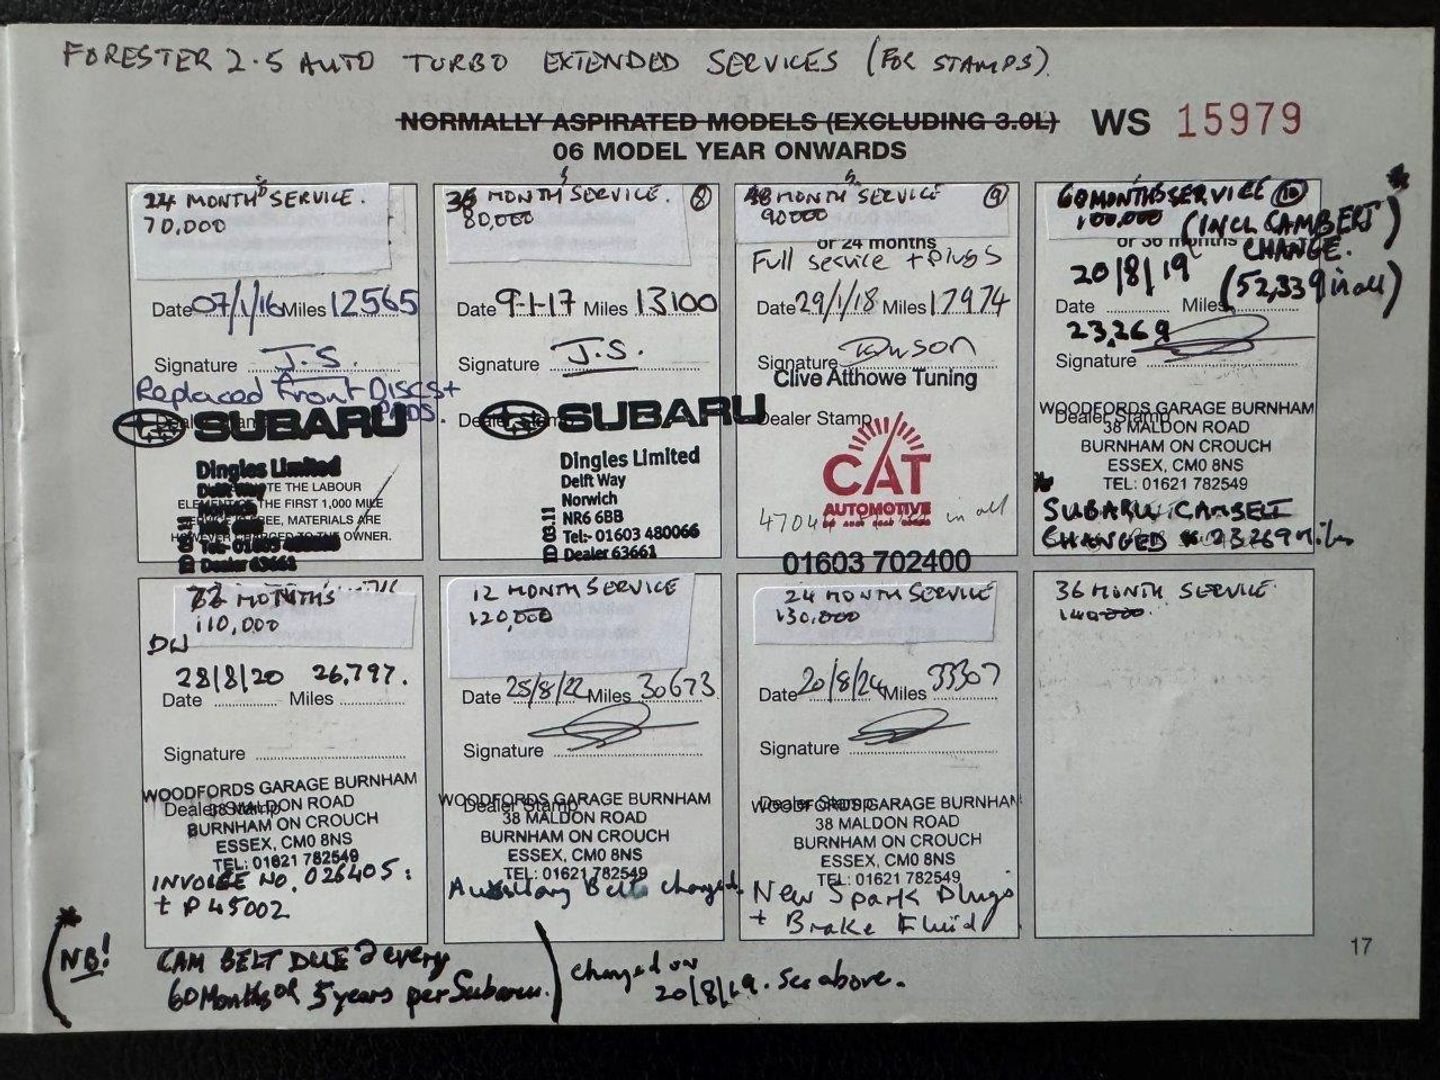 FORESTER 2.5 AUTO TURBO EXTENDED SERVICES (FOR STAMPS).
NORMALLY ASPIRATED MODELS (EXCLUDING 3.0L) WS 15979
06 MODEL YEAR ONWARDS
24 MONTH SERVICE.
70,000
Date 07/1/16 Miles 12565
Signature J.S.
Replaced Front Discs +
PADS.
SUBARU
Dingles Limited
Delft Way
Norwich
TE THE LABOUR
THE FIRST 1,000 MILE
EE, MATERIALS ARE
OWNER.
Dealer 63661
36 MONTH SERVICE. 8
80,000
Date 9-1-17 Miles 13100
Signature J.S.
SUBARU
Dingles Limited
Delft Way
Norwich
NR6 6BB
Tel:- 01603 480066
Dealer 63661
48 MONTH SERVICE 9
90000
or 24 months
Full service + plugs
Date 29/1/18 Miles 17974
Signature
Clive Atthowe Tuning
Dealer Stamp
CAT
AUTOMOTIVE
in all
01603 702400
60 MONTHS SERVICE 10
100.000 (INCL CAMBERT)
or 36 months CHANGE.
20/8/19 (52,339 in all)
Date Miles
23,269
Signature
WOODFORDS GARAGE BURNHAM
Dealer Stamp
38 MALDON ROAD
BURNHAM ON CROUCH
ESSEX, CM0 8NS
TEL: 01621 782549
SUBARU CAMBELT
CHANGED 23269 miles
MONTHS
110,000
DW
28/8/20 26,797.
Date Miles
Signature
WOODFORDS GARAGE BURNHAM
Dealer Stamp
38 MALDON ROAD
BURNHAM ON CROUCH
ESSEX, CM0 8NS
TEL: 01621 782549
INVOICE NO. 026405:
+ P45002
12 MONTH SERVICE
120,000
Date 25/8/22 Miles 30673
Signature
WOODFORDS GARAGE BURNHAM
Dealer Stamp
38 MALDON ROAD
BURNHAM ON CROUCH
ESSEX, CM0 8NS
TEL: 01621 782549
Auxiliary Belt changed.
24 MONTH SERVICE
130,000
Date 20/8/24 Miles 33307
Signature
Dealer Stamp
WOODFORDS GARAGE BURNHAM
38 MALDON ROAD
BURNHAM ON CROUCH
ESSEX, CM0 8NS
TEL: 01621 782549
New Spark Plugs
+ Brake Fluid
36 MONTH SERVICE
140000
17
(NB! CAM BELT DUE every
60 Months or 5 years per Subaru.) changed on
20/8/19. See above.